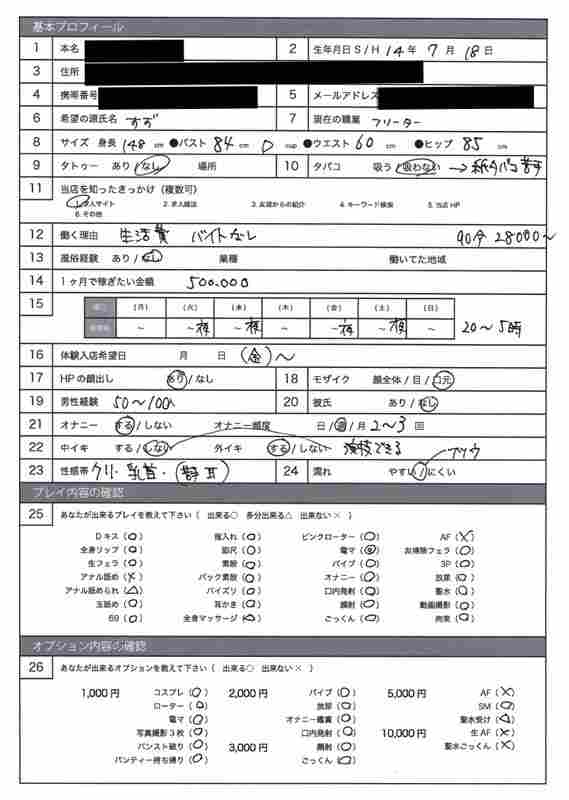 基本プロフィール
1 本名 2 生年月日 S / H 14 年 7 月 18 日
3 住所
4 携帯番号 5 メールアドレス
6 希望の源氏名 すず 7 現在の職業 フリーター
8 サイズ 身長 148 cm ●バスト 84 cm D cup ●ウエスト 60 cm ●ヒップ 85 cm
9 タトゥー あり / なし 場所 10 タバコ 吸う / 吸わない → 紙タバコ苦手
11 当店を知ったきっかけ (複数可)
1. 求人サイト 2. 求人雑誌 3. 友達からの紹介 4. キーワード検索 5. 当店 HP
6. その他
12 働く理由 生活費 バイトなし 90分 28000〜
13 風俗経験 あり / なし 業種 働いてた地域
14 1ヶ月で稼ぎたい金額 500.000
15 (月) (火) (水) (木) (金) (土) (日)
~ ~夜 ~夜 ~ ~夜 ~夜 ~ 20〜5時
16 体験入店希望日 月 日 (金) 〜
17 HPの顔出し あり / なし 18 モザイク 顔全体 / 目 / 口元
19 男性経験 50〜100人 20 彼氏 あり / なし
21 オナニー する / しない オナニー頻度 日 / 週 / 月 2〜3 回
22 中イキ する / しない 外イキ する / しない 演技できる
23 性感帯 クリ・乳首・ 24 濡れ やすい / にくい フツウ
プレイ内容の確認
25 あなたが出来るプレイを教えて下さい { 出来る○ 多分出来る△ 出来ない× }
Dキス (○) 指入れ (○) ピンクローター (○) AF (×)
全身リップ (○) 即尺 (○) 電マ (◎) お掃除フェラ (○)
生フェラ (○) 素股 (○) バイブ (○) 3P (○)
アナル舐め (×) バック素股 (○) オナニー (○) 放尿 (○)
アナル舐められ (△) パイズリ (○) 口内発射 (○) 聖水 (○)
玉舐め (○) 耳かき (○) 顔射 (○) 動画撮影 (○)
69 (○) 全身マッサージ (△) ごっくん (○) 拘束 (○)
オプション内容の確認
26 あなたが出来るオプションを教えて下さい { 出来る○ 出来ない× }
1,000円 コスプレ (○) 2,000円 バイブ (○) 5,000円 AF (×)
ローター (○) 放尿 (○) SM (○)
電マ (○) オナニー鑑賞 (○) 聖水受け (△)
写真撮影3枚 (○) 口内発射 (○) 10,000円 生AF (×)
パンスト破り (○) 3,000円 顔射 (○) 聖水ごっくん (×)
パンティー持ち帰り (○) ごっくん (○)